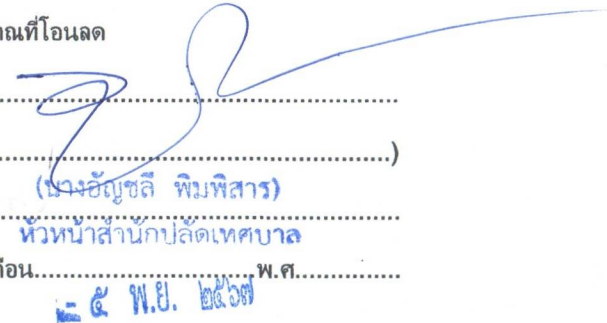 าณที่โอนลด
....................................................
....................................................)
(นางอัญชลี พิมพิสาร)
....................................................
หัวหน้าสำนักปลัดเทศบาล
ดือน..............................พ.ศ...............
- ๕ พ.ย. ๒๕๖๗